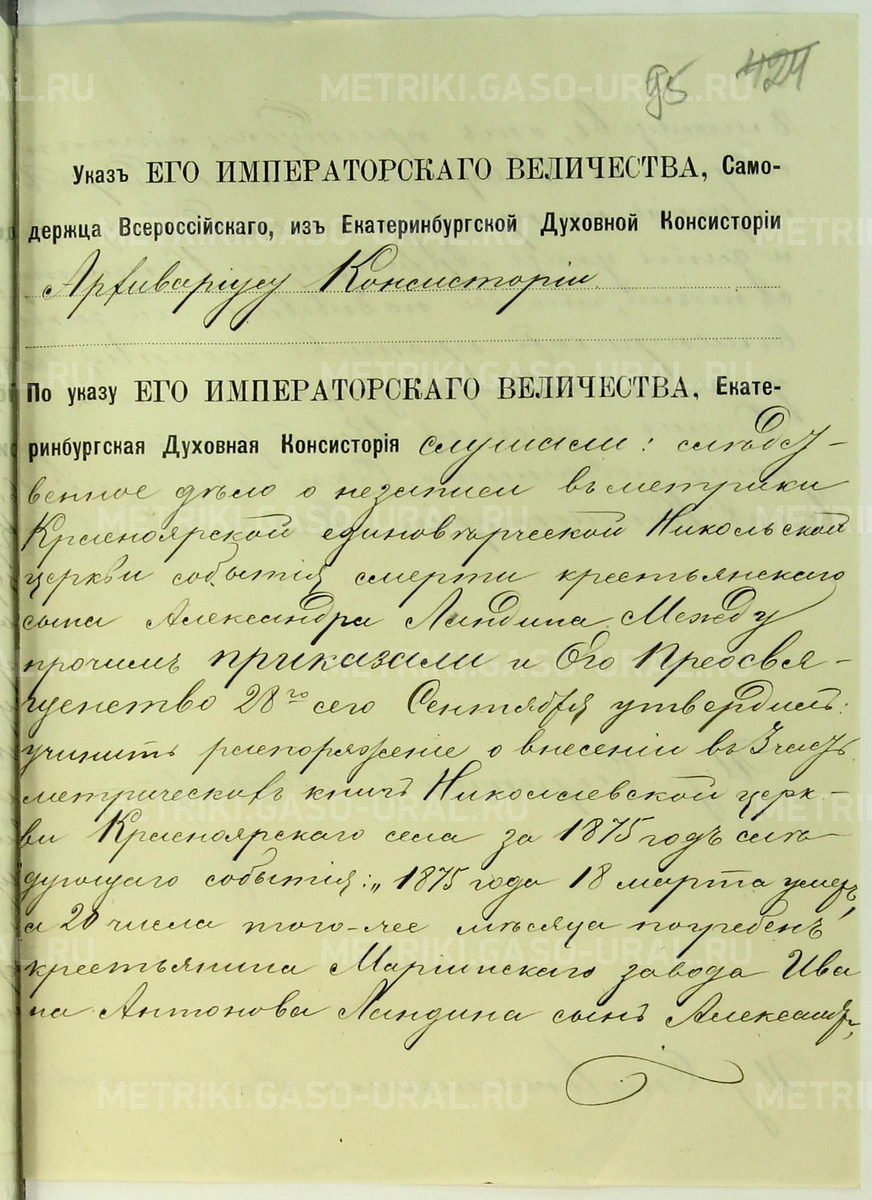 95 424
Указъ ЕГО ИМПЕРАТОРСКАГО ВЕЛИЧЕСТВА, Само-
держца Всероссійскаго, изъ Екатеринбургской Духовной Консисторіи
Архиваріусу Консисторіи
По указу ЕГО ИМПЕРАТОРСКАГО ВЕЛИЧЕСТВА, Екате-
ринбургская Духовная Консисторія слушали: слѣдс-
твенное дѣло о незаписи въ метрики
Красноярской единовѣрческой Никольской
церкви событія смерти крестьянскаго
сына Александра Ландина. Между
прочимъ приказали и Его Преосвя-
щенство 28го сего Сентября утвердилъ:
учинить распоряженіе о внесеніи въ 3 часть
метрическихъ книгъ Николаевской церк-
ви Красноярскаго села за 1875 годъ слѣ-
дующаго событія: „1875 года 18 марта умеръ,
а 20 числа того-же мѣсяца погребенъ
крестьянина Маріинскаго завода Ива
на Антонова Ландина сынъ Александръ,
METRIKI.GASO-URAL.RU